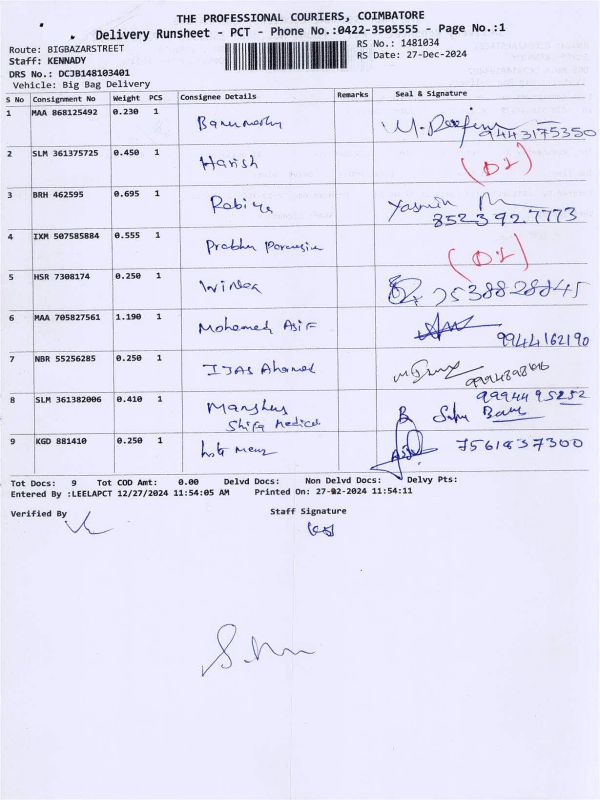 THE PROFESSIONAL COURIERS, COIMBATORE
Delivery Runsheet - PCT - Phone No.:0422-3505555 - Page No.:1
Route: BIGBAZARSTREET
RS No.: 1481034
Staff: KENNADY
RS Date: 27-Dec-2024
DRS No.: DCJB148103401
Vehicle: Big Bag Delivery
S No Consignment No Weight PCS Consignee Details Remarks Seal & Signature
1 MAA 868125492 0.230 1
9443175350
2 SLM 361375725 0.450 1 Harish (D1)
3 BRH 462595 0.695 1 Rabiya Yasmin
8523927773
4 IXM 507585884 0.555 1 Prabhu (D1)
5 HSR 7308174 0.250 1 7538828845
6 MAA 705827561 1.190 1 Mohamed Asif
9944162190
7 NBR 55256285 0.250 1 IJAS Ahamed
8 SLM 361382006 0.410 1 9994495252
Shifa Medical
9 KGD 881410 0.250 1 7561857300
Tot Docs: 9 Tot COD Amt: 0.00 Delvd Docs: Non Delvd Docs: Delvy Pts:
Entered By :LEELAPCT 12/27/2024 11:54:05 AM Printed On: 27-12-2024 11:54:11
Verified By Staff Signature